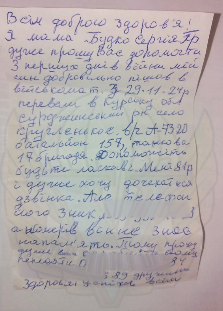 Всім доброго здоров'я!
Я мама Будко Сергія Гр
дуже прошу вас допомогти
З перших днів війни мій
син добровільно пішов в
військомат. З 29.11.24р
перевели в Курську обл
Суджанський р-н село
Кругленькое. в/ч А-7320
батальйон 157, танкова
17 бригада. Допоможіть
будьте ласкаві. Мені 81р
і дуже хочу дочекатися
дзвінка. Але телефон
його зник
а номерів він не знав
напам'ять. Тому прошу
дуже вас
З 89 друж
Здоровья успіхов всем